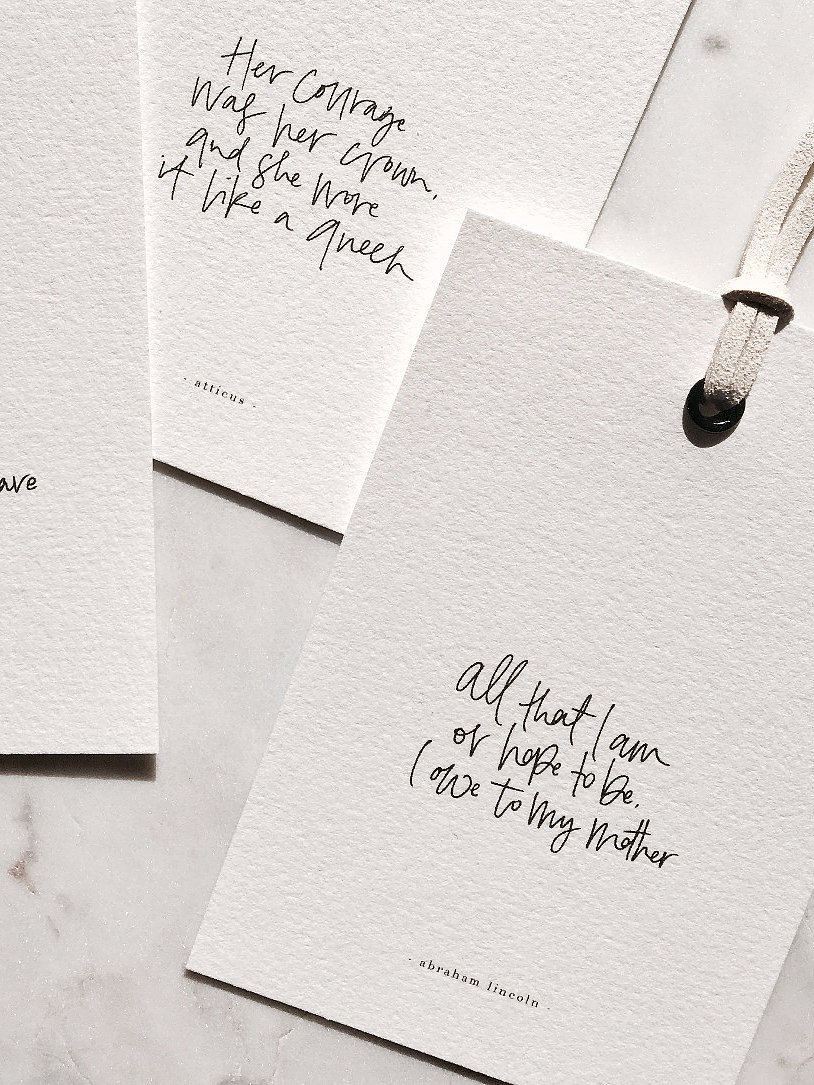 Her courage
was her crown,
and she wore
it like a queen
- atticus -
ave
all that I am
or hope to be,
I owe to my mother
- abraham lincoln -